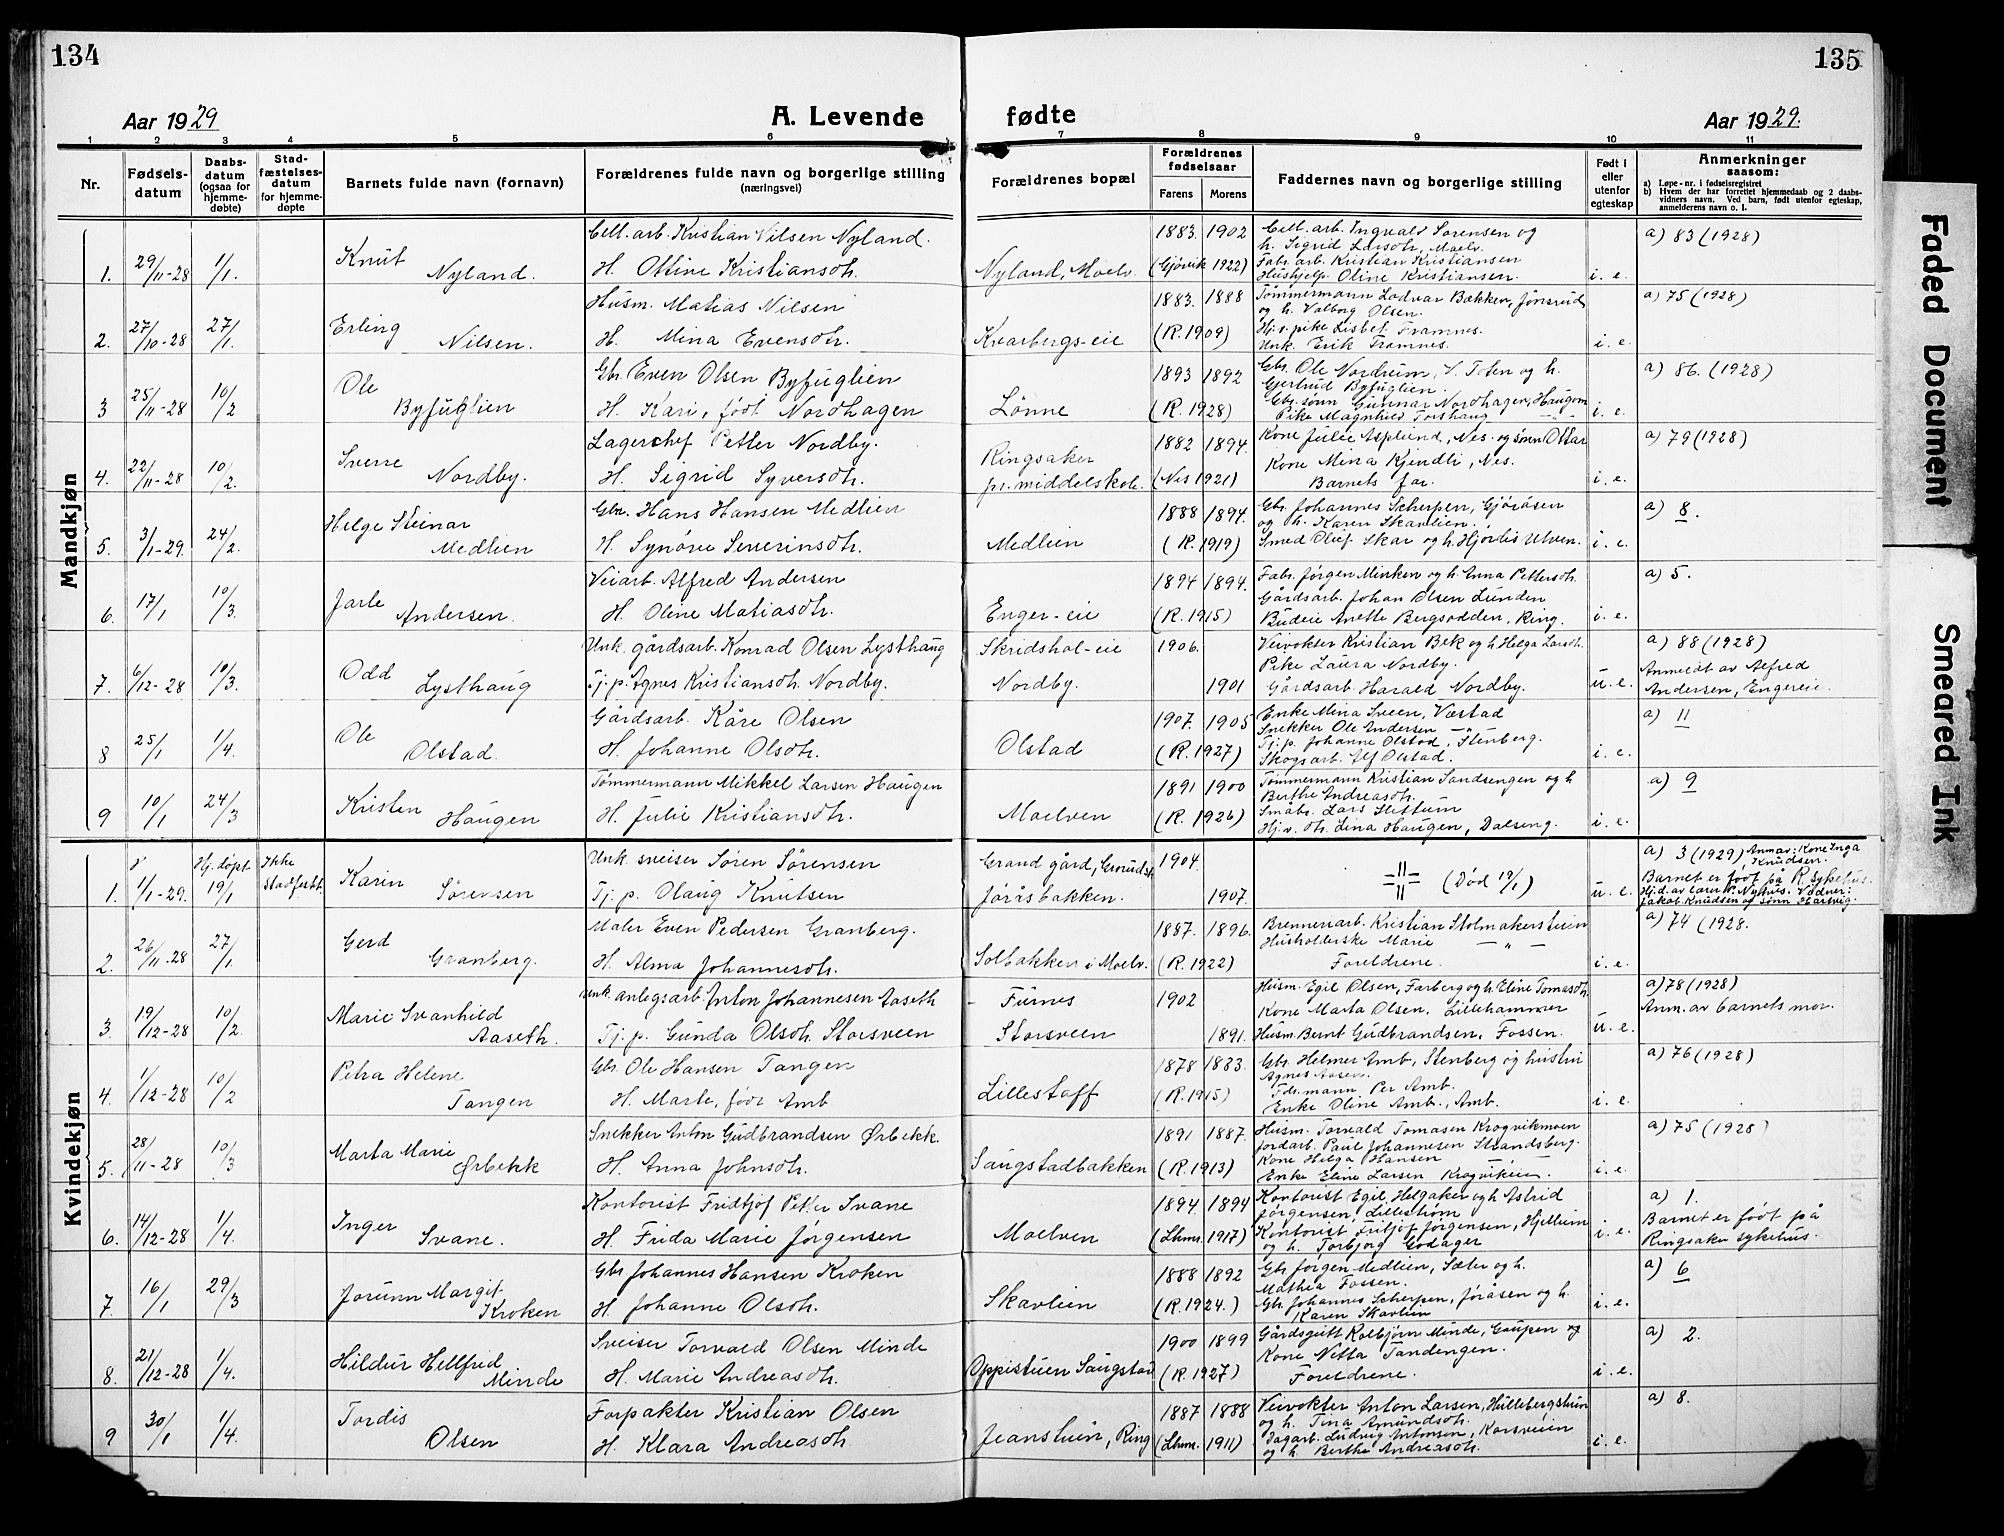 134
135
Aar 1929
A. Levende
fødte
Aar 1929.
1 2 3 4 5 6 7 8 9 10 11
Nr.
Fødsels-
datum
Daabs-
datum
(ogsaa for
hjemme-
døbte)
Stad-
fæstelses-
datum
for hjemme-
døpte
Barnets fulde navn (fornavn)
Forældrenes fulde navn og borgerlige stilling
(næringsvei)
Forældrenes bopæl
Forældrenes
fødselsaar
Farens Morens
Faddernes navn og borgerlige stilling
Født i
eller
utenfor
egteskap
Anmerkninger
saasom:
a) Løpe-nr. i fødselsregistret
b) Hvem der har forrettet hjemmedaab og 2 daabs-
vidners navn. Ved barn, født utenfor egteskap,
anmelderens navn o. l.
Mandkjøn
1. 29/11-28 1/1.
Knut
Nyland.
Cell. arb. Kristian Nilsen Nyland.
H. Ottine Kristiansdtr.
Nyland, Moelv.
1883. 1902
(Gjøvik 1922)
Cell. arb. Ingvald Sørensen og
h. Sigrid Larsdtr, Moelv.
Fabr. arb. Kristian Kristiansen
Hushjelp. Oline Kristiansen.
i. e.
a) 83 (1928)
2. 27/10-28 27/1.
Erling
Nilsen.
Husm. Matias Nilsen
H. Mina Evensdtr.
Kvarbergs-eie
1883. 1888
(R. 1909)
Tømmermann Lodvar Bakken, Jønsrud
og h. Valborg Olsen.
Hj.v. pike Lisbet Framnes.
Unk. Erik Framnes.
i. e.
a) 75 (1928)
3 25/11-28 10/2
Ole
Byfuglien
Gbr. Even Olsen Byfuglien
H. Kari, født Nordhagen
Lønne
1893 1892
(R. 1928)
Gbr. Ole Nordrum, S. Toten og h.
Gjertrud Byfuglien.
Gbr. sønn Gunnar Nordhagen, Haugom
Pike Magnhild Torshaug — " —
i. e.
a) 86. (1928)
4. 22/11-28 10/2.
Sverre
Nordby.
Lagerchef Petter Nordby.
H. Sigrid Syversdtr.
Ringsaker
pr. middelskole.
1882 1894.
(Nes 1921)
Kone Julie Asplund, Nes. og sønn Ottar
Kone Mina Kjendli, Nes.
Barnets far.
i. e.
a) 79 (1928)
5. 3/1-29. 24/2.
Helge Steinar
Medlien
Gbr. Hans Hansen Medlien
H. Synøve Severinsdtr.
Medlien
1888 1894.
(R. 1919)
Gbr. Johannes Scherpen, Gjøråsen
og h. Karen Skavlien.
Smed Oluf Skar og h. Hjørdis Ulven.
i. e.
a) 8.
6. 17/1 10/3.
Jarle
Andersen.
Veiarb. Alfred Andersen
H. Oline Matiasdtr.
Enger-eie
1894 1894.
(R. 1915)
Fabr. Jørgen Minken og h. Anna Pettersdtr.
Gårdsarb. Johan Olsen Lunden
Budeie Anette Bergsodden, Ring.
i. e.
a) 5.
7. 6/12-28 10/3.
Odd
Lysthaug
Unk. gårdsarb. Konrad Olsen Lysthaug
Tj. p. Agnes Kristiansdtr. Nordby.
Skridshol-eie
Nordby.
1906.
1901
Veivokter Kristian Bek og h. Helga Larsdtr.
Pike Laura Nordby.
Gårdsarb. Harald Nordby.
u. e.
a) 88 (1928)
Anmeldt av Alfred
Andersen, Engereie.
8 25/1 1/4.
Ole
Olstad.
Gårdsarb. Kåre Olsen
H. Johanne Olsdtr.
Olstad
1907. 1905
(R. 1927)
Enke Mina Sveen, Væstad
Snekker Ole Andersen — " —
Tj. p. Johanne Olstad, Stenberg.
Skogsarb. Alf Olstad.
i. e.
a) 11
9 10/1 24/3
Kristen
Haugen
Tømmermann Mikkel Larsen Haugen
H. Julie Kristiansdtr.
Moelven
1891 1900
(R. 1926)
Tømmermann Kristian Sandsengen og h
Berthe Andreasdtr.
Småbr. Lars Slettum
Hj.v. dtr. Lina Haugen, Dalseng.
i. e.
a) 9
Kvindekjøn
1. 1/1-29. Hj. døpt 19/1 Ikke
Stadfestet.
Karin
Sørensen
Unk. sveiser Søren Sørensen
Tj. p. Olaug Knutsen
Grand gård, Grorudst.
Jøråsbakken.
1904.
1907.
(Død 19/1)
u. e.
a) 3 (1929) Anm av: Kone Inga
Knudsen.
Barnet er født på R. sykehus.
Hj.d. av lærer P. Nyhus. Vidner:
Jakob Knudsen og sønn Hartvig.
2. 26/11-28 27/1.
Gerd
Granberg.
Maler Even Pedersen Granberg.
H. Alma Johannesdtr.
Solbakken i Moelv.
1887. 1896.
(R. 1922)
Brenneriarb. Kristian Stolmakerstuen
Husholderske Marie — " —
Foreldrene.
i. e.
a) 74 (1928.
3. 19/12-28 10/2.
Marie Svanhild
Aaseth.
Unk. anlegsarb. Anton Johannesen Aaseth
Tj. p. Gunda Olsdtr. Storsveen
Furnes
Storsveen
1902
1891.
Husm. Egil Olsen, Farberg og h. Eline Tomasdtr.
Kone Marta Olsen, Lillehammer
Husm. Bernt Gudbrandsen, Fossen.
u. e.
a) 78 (1928)
Anm. av barnets mor.
4. 1/12-28 10/2
Petra Helene
Tangen
Gbr. Ole Hansen Tangen
H. Marte, født Amb
Lillestoff
1878 1883.
(R. 1915)
Gbr. Helmer Amb, Stenberg og hustru
Agnes Aasen.
Fdr.mann Per Amb.
Enke Oline Amb., Amb.
i. e.
a) 76 (1928)
5. 28/11-28 10/3
Marta Marie
Ørbekk
Snekker Anton Gudbrandsen Ørbekk.
H. Anna Johnsdtr.
Saugstadbakken
1891 1887.
(R. 1913)
Husm. Torvald Tomasen Krogvikmoen
Jordarb. Paul Johannesen Strandsberg.
Kone Helga Hansen — " —
Enke Eline Larsen Krogvikeien.
i. e.
a) 75 (1928)
6. 14/12-28 1/4.
Inger
Svane.
Kontorist Fridtjof Petter Svane
H. Frida Marie Jørgensen
Moelven
1894 1894
(Lhmr. 1917)
Kontorist Egil Helgaker og h. Astrid
Jørgensen, Lillestrøm
Kontorist Fritjof Jørgensen, Hjellum
og h. Torbjørg Godager
i. e.
a) 1.
Barnet er født på
Ringsaker sykehus.
7. 16/1 29/3
Jorunn Margit
Kroken
Gbr Johannes Hansen Kroken
H. Johanne Olsdtr.
Skavlien
1888 1892
(R. 1924.)
Gbr Jørgen Medlien, Sæter og h.
Mathea Fossen.
Gbr. Johannes Scherpen, Jøråsen og h.
Karen Skavlien
i. e.
a) 6
8. 21/12-28 1/4.
Hildur Hellfred
Minde
Sveiser Torvald Olsen Minde
H. Marie Andreasdtr.
Oppistuen Saugstad
1900 1899
(R. 1927)
Gårdsgutt Kolbjørn Minde, Gaupen og
Kone Netta Tandengen.
Foreldrene.
i. e.
a) 2.
9 30/1 1/4.
Tordis
Olsen
Forpakter Kristian Olsen
H. Klara Andreasdtr.
Jeanstuen, Ring
1887 1888
(Lhmr. 1911)
Veivokter Anton Larsen, Hullebergstuen
og h. Tina Amundsdtr.
Dagarb. Ludvig Antonsen, Korsveien
og h. Berthe Andreasdtr.
i. e.
a) 8.
Faded Document
Smeared Ink